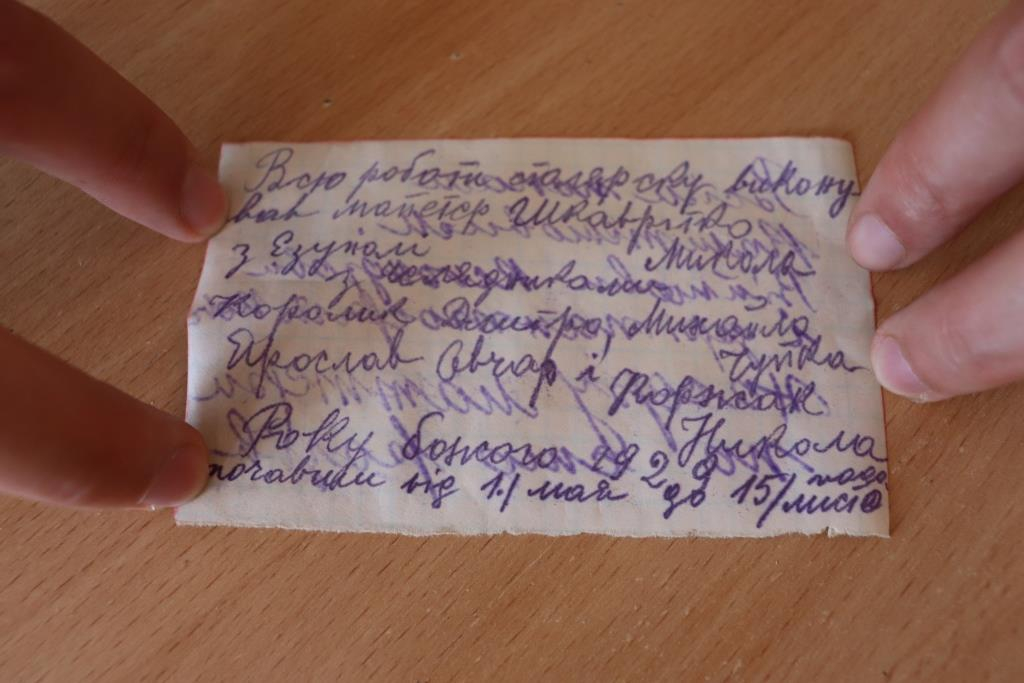 Всю роботи столярску викону
вав майстр Шкавритко
з Езуполя Микола
з челядниками
Королик Дмитро, Михайло
Ярослав Овчар і Чупка
Коржак
Року божого 1929 Никола
почавши від 1./ мая до 15/ листо
пада